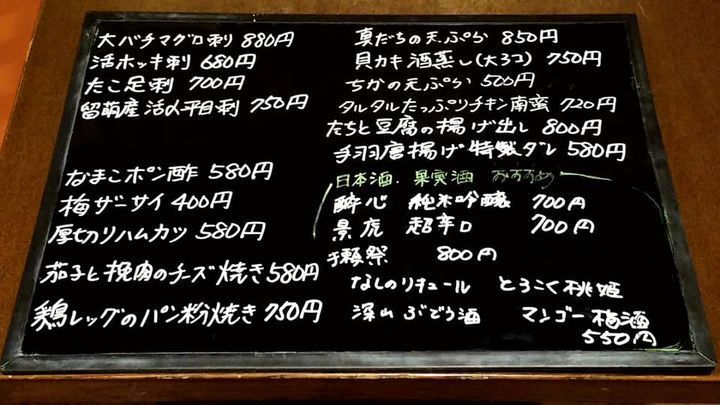 大バチマグロ刺 880円
活ホッキ刺 680円
たこ足刺 700円
留萌産活〆平目刺 750円
なまこポン酢 580円
梅ザーサイ 400円
厚切りハムカツ 580円
茄子と挽肉のチーズ焼き 580円
鶏レッグのパン粉焼き 750円
真だちの天ぷら 850円
貝カキ酒蒸し(大3コ) 750円
ちかの天ぷら 500円
タルタルたっぷりチキン南蛮 720円
たちと豆腐の揚げ出し 800円
手羽唐揚げ特製ダレ 580円
日本酒・果実酒 おすすめ
酔心 純米吟醸 700円
景虎 超辛口 700円
獺祭 800円
なしのリキュール とろこく桃姫
深山ぶどう酒 マンゴー梅酒
550円